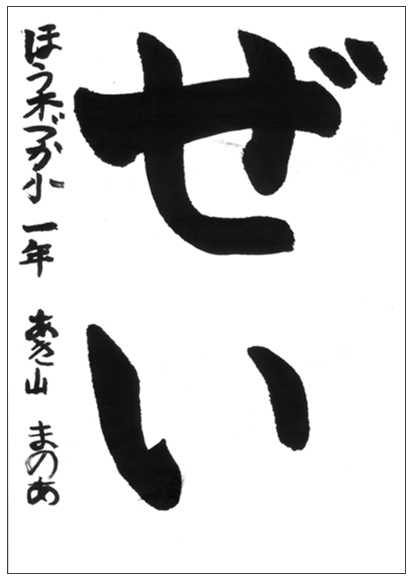 ぜい
ほう木づか小 一年 あき山 まのあ